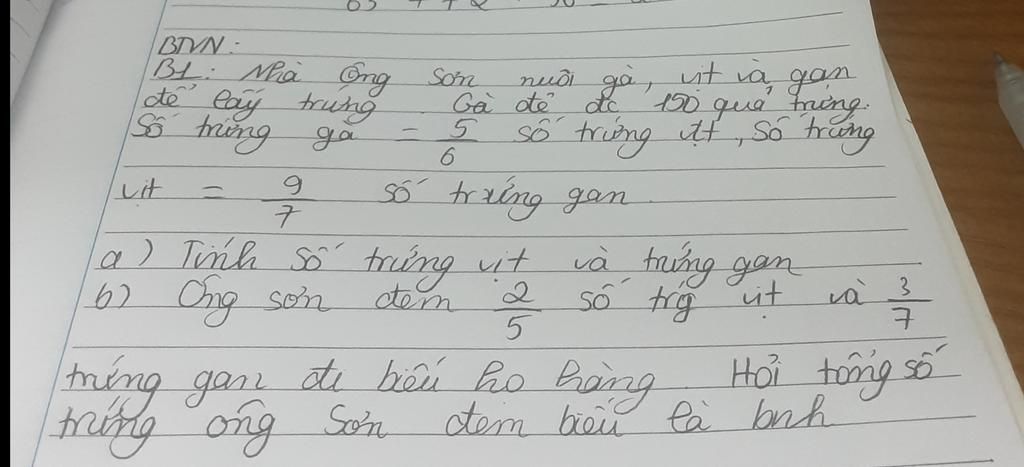 BTVN:
B1: Nhà ông Sơn nuôi gà, vịt và gan
để lấy trứng Gà đẻ đc 150 quả trứng.
Số trứng gà = 5/6 số trứng vịt, số trứng
vịt = 9/7 số trứng gan
a) Tính số trứng vịt và trứng gan
b) Ông sơn đem 2/5 số trg vịt và 3/7
trứng gan đi biếu họ hàng Hỏi tổng số
trứng ông Sơn đem biếu là bnh